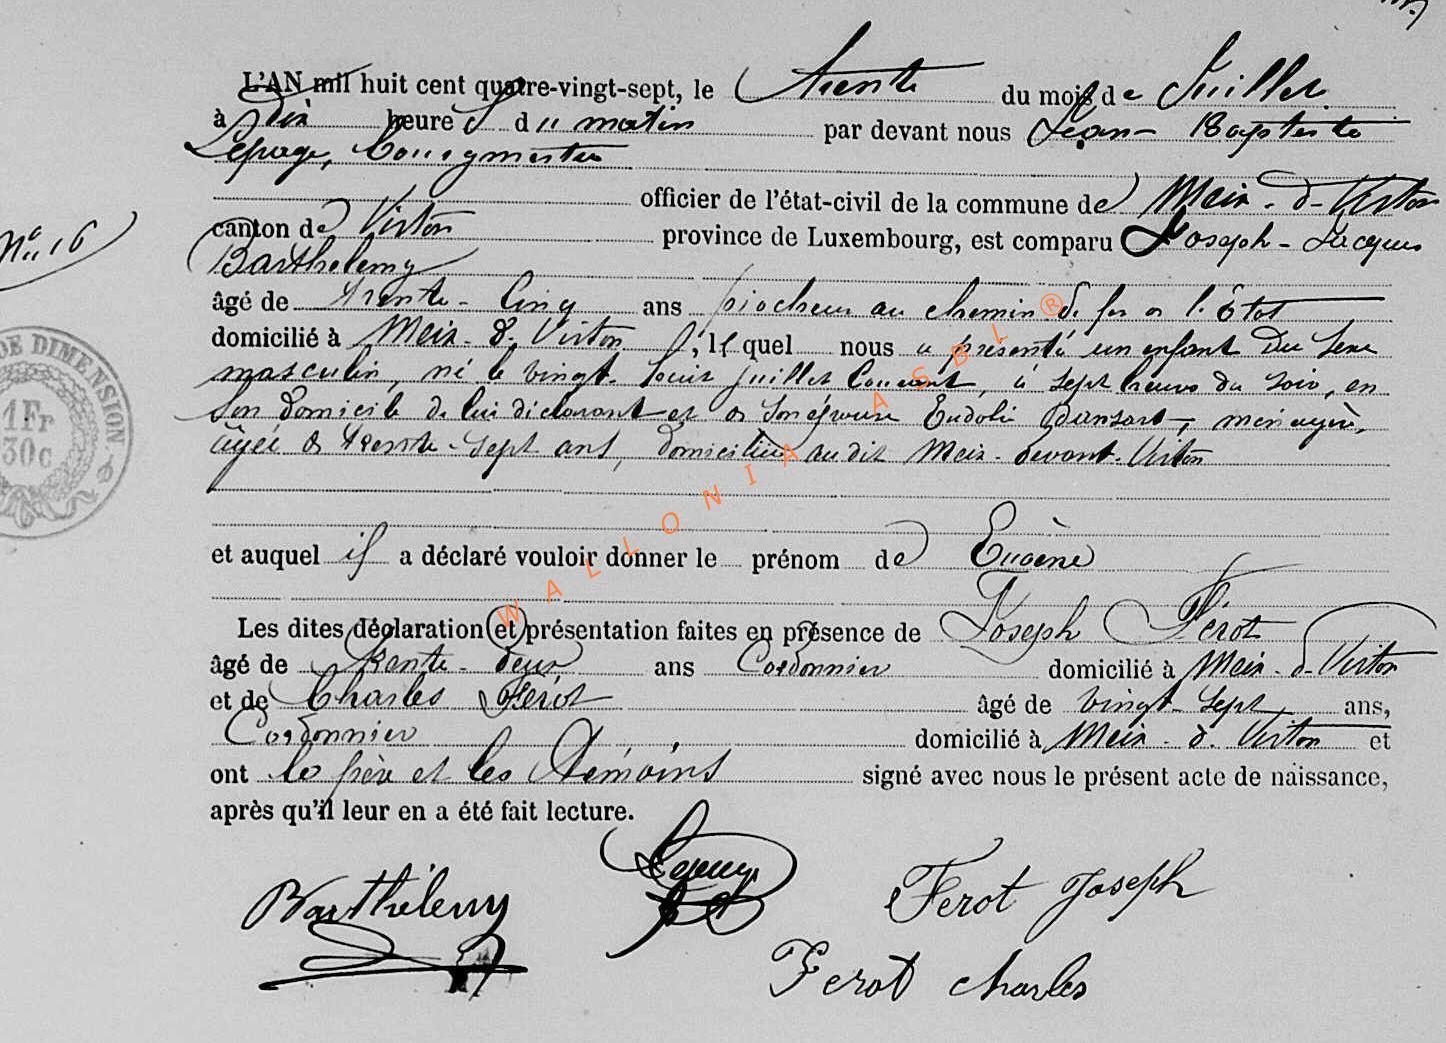 L'AN mil huit cent quatre-vingt-sept, le trente du mois de Juillet
à dix heures du matin par devant nous Jean-Baptiste
Lepage, bourgmestre
officier de l'état-civil de la commune de Meix-d-Virton
N° 16
canton de Virton province de Luxembourg, est comparu Joseph-Jacques
Barthelemy
âgé de trente-cinq ans piocheur au chemin de fer de l'État
domicilié à Meix-d-Virton, lequel nous a présenté un enfant du sexe
masculin, né le vingt-huit juillet courant, à sept heures du soir, en
son domicile de lui déclarant et de son épouse Eudolie Dansart, ménagère,
âgée de trente-sept ans, domiciliée audit Meix-devant-Virton
et auquel il a déclaré vouloir donner le prénom de Eugène
Les dites déclaration et présentation faites en présence de Joseph Férot
âgé de trente-deux ans Cordonnier domicilié à Meix-d-Virton
et de Charles Férot âgé de vingt-sept ans,
Cordonnier domicilié à Meix-d-Virton et
ont le père et les témoins signé avec nous le présent acte de naissance,
après qu'il leur en a été fait lecture.
Barthélemy Lepage JB Ferot Joseph
Ferot charles
DE DIMENSION
1 Fr
30c
WALLONIA ASBL ®